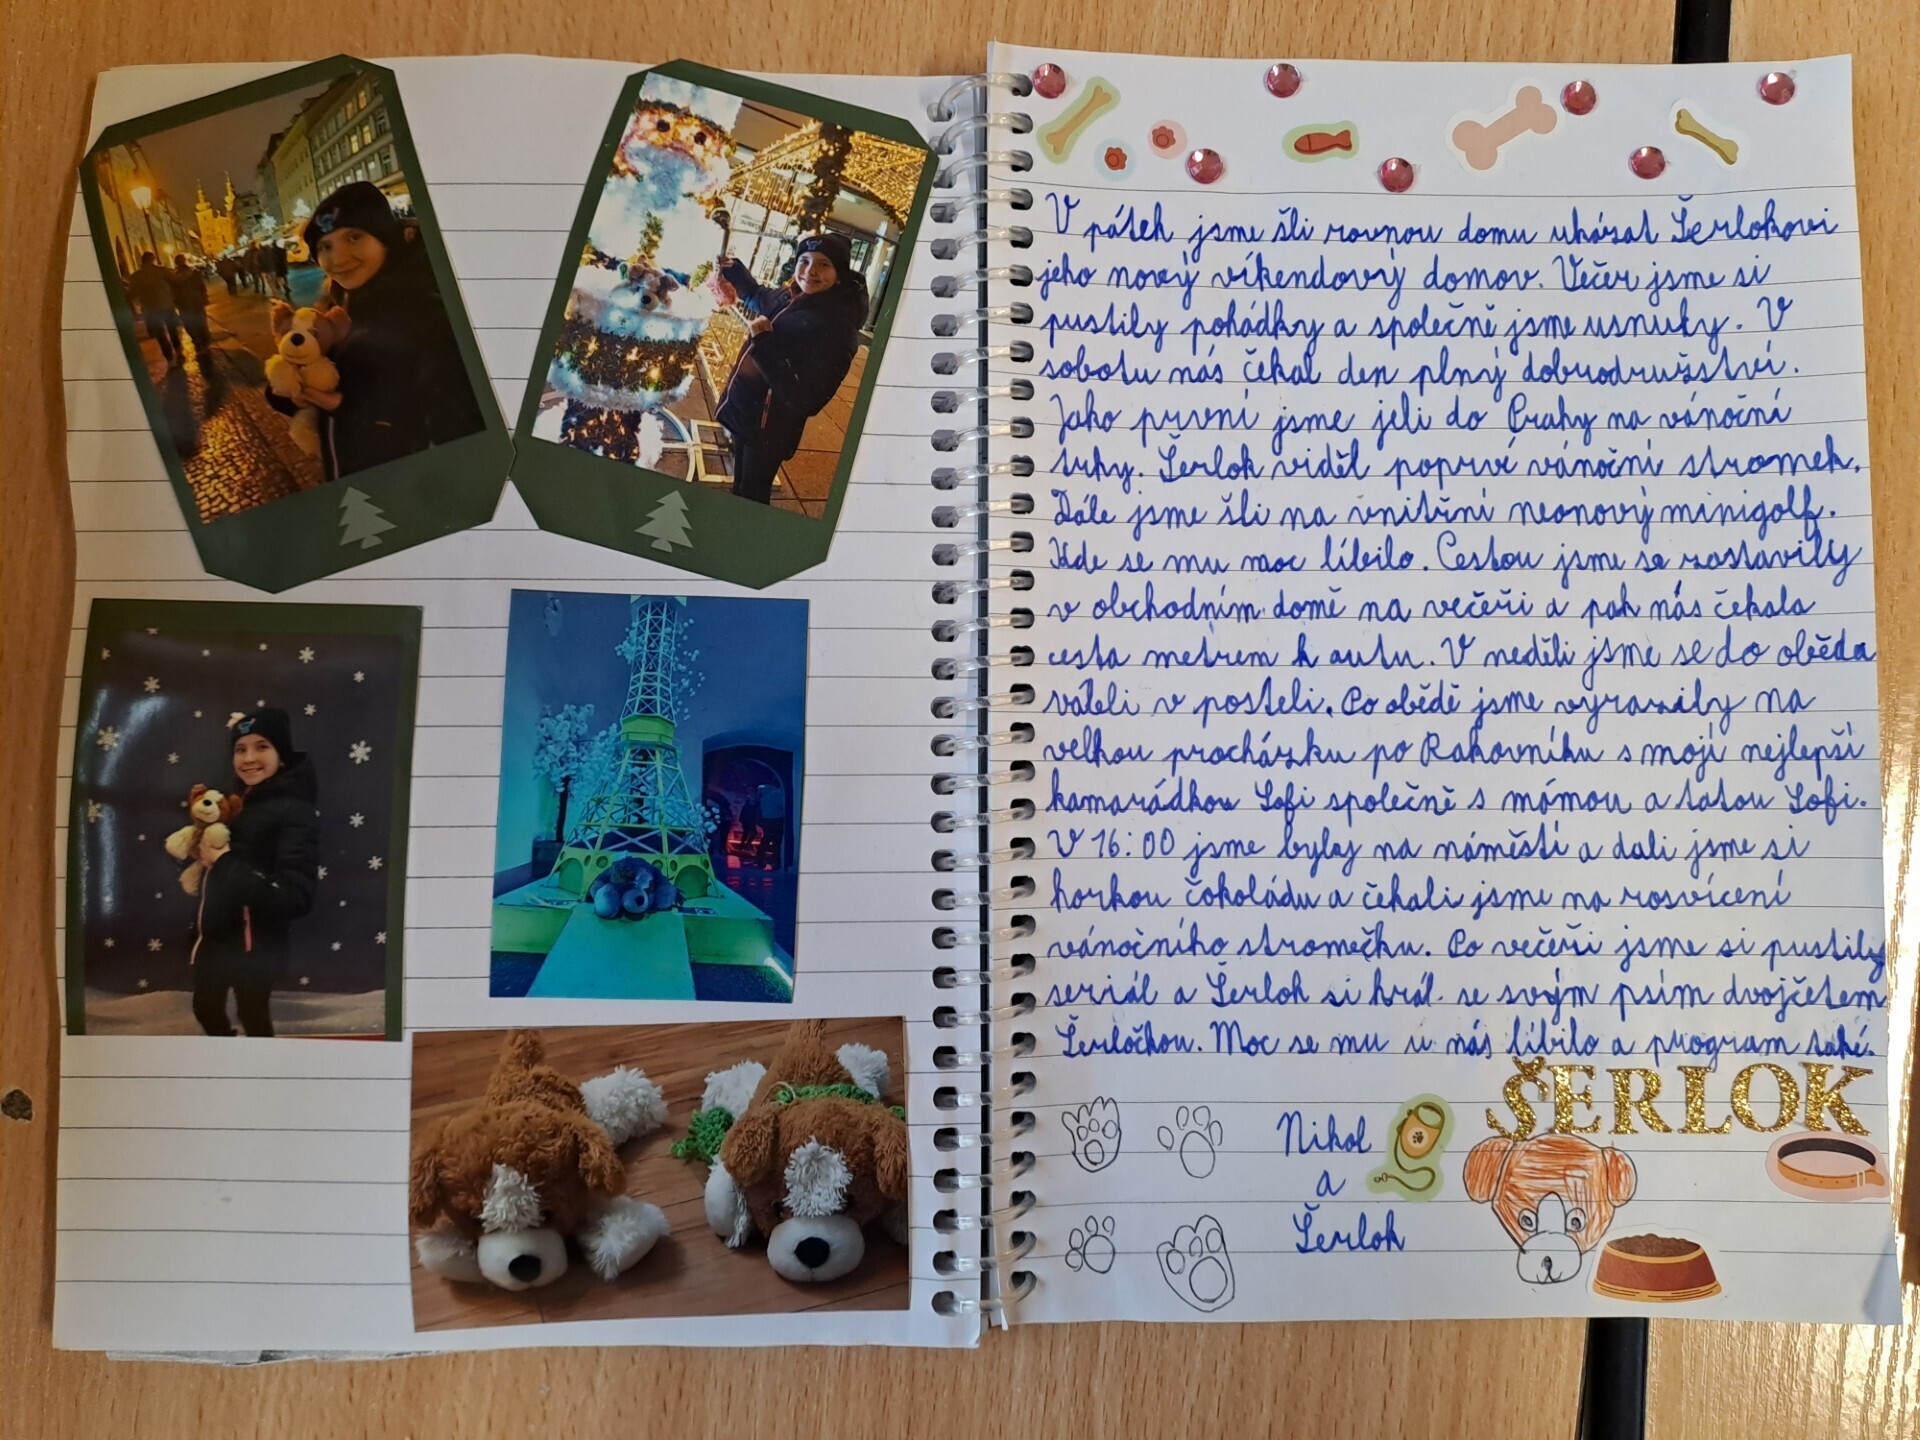 V pátek jsme šli rovnou domu ukázat Šerlokovi
jeho nový víkendový domov. Večer jsme si
pustily pohádky a společně jsme usnuly. V
sobotu nás čekal den plný dobrodružství.
Jako první jsme jeli do Prahy na vánoční
trhy. Šerlok viděl poprvé vánoční stromek.
Dále jsme šli na vnitřní neonový minigolf.
Kde se mu moc líbilo. Cestou jsme se zastavily
v obchodním domě na večeři a pak nás čekala
cesta metrem k autu. V neděli jsme se do oběda
váleli v posteli. Po obědě jsme vyrazily na
velkou procházku po Rakovníku s mojí nejlepší
kamarádkou Sofi společně s mámou a tatou Sofi.
V 16:00 jsme byly na náměstí a dali jsme si
horkou čokoládu a čekali jsme na rosvícení
vánočního stromečku. Po večeři jsme si pustily
seriál a Šerlok si hrál se svým psím dvojčetem
Šerločkou. Moc se mu u nás líbilo a program také.
ŠERLOK
Nikol
a
Šerlok